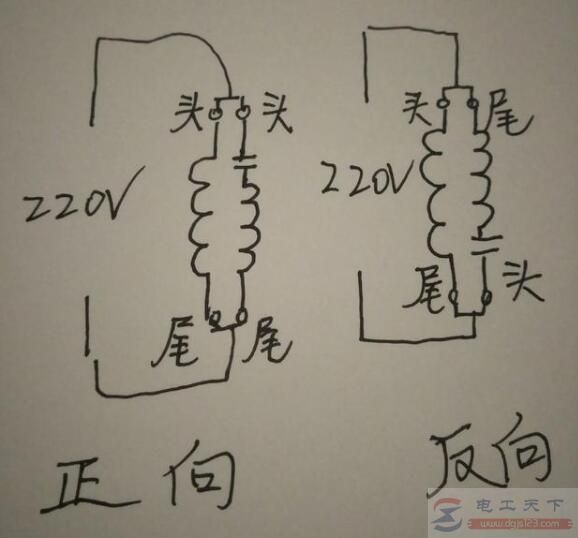 头 头
220V
尾 尾
正向
头 尾
220V
尾 头
反向
电工天下
www.dgjs123.com